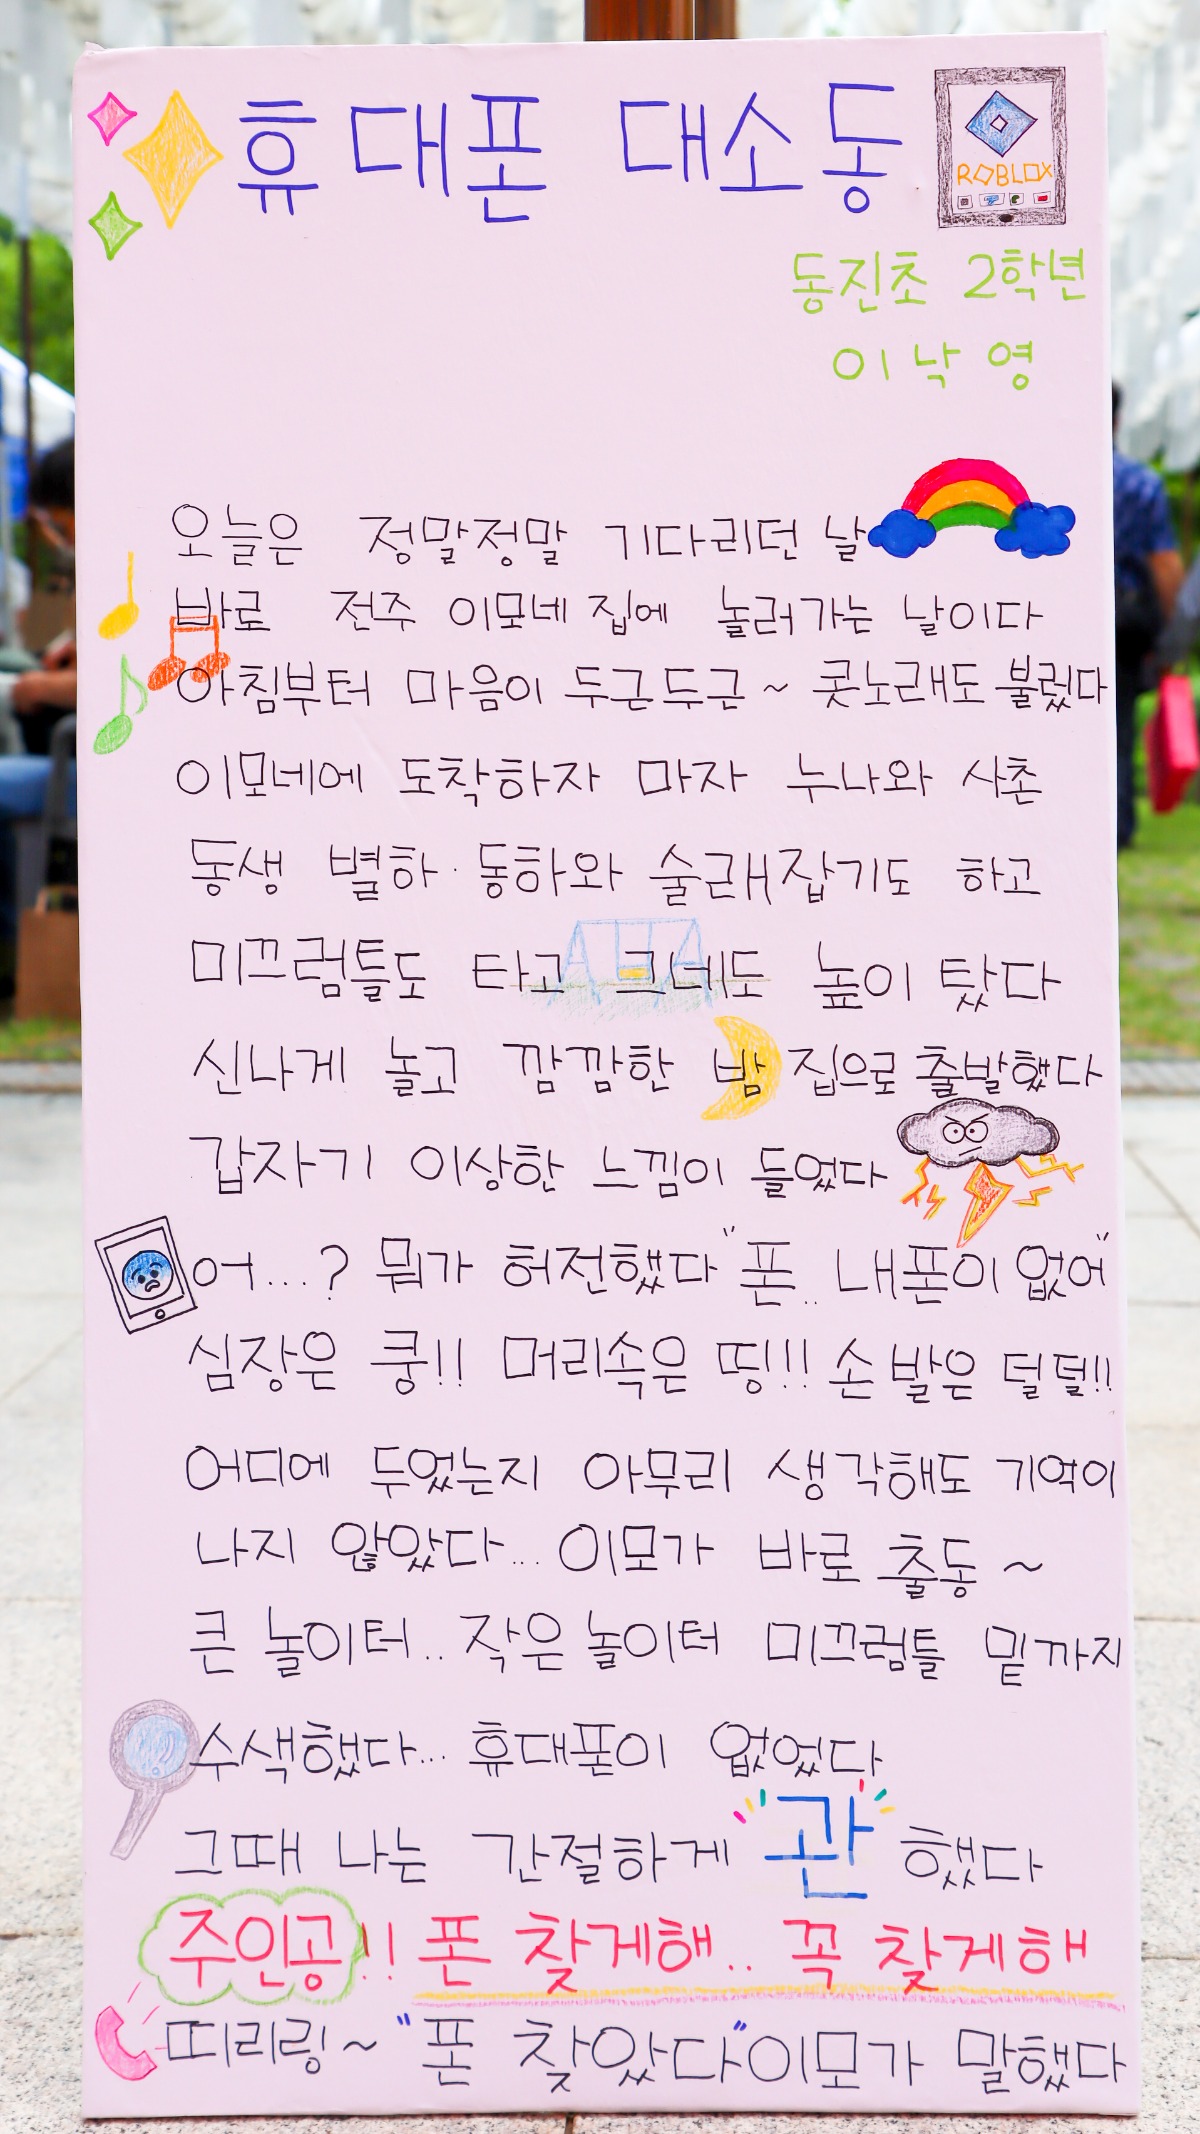 휴대폰 대소동
ROBLOX
동진초 2학년
이낙영
오늘은 정말정말 기다리던 날
바로 전주 이모네 집에 놀러가는 날이다
아침부터 마음이 두근두근~ 콧노래도 불렀다
이모네에 도착하자 마자 누나와 사촌
동생 별하·동하와 술래잡기도 하고
미끄럼틀도 타고 그네도 높이 탔다
신나게 놀고 깜깜한 밤 집으로 출발했다
갑자기 이상한 느낌이 들었다
어...? 뭐가 허전했다 "폰.. 내폰이 없어"
심장은 쿵!! 머리속은 띵!!! 손발은 덜덜!!
어디에 두었는지 아무리 생각해도 기억이
나지 않았다... 이모가 바로 출동~
큰 놀이터.. 작은 놀이터 미끄럼틀 밑까지
수색했다... 휴대폰이 없었다
그때 나는 간절하게 관 했다
주인공!! 폰 찾게해.. 꼭 찾게해
띠리링~ "폰 찾았다" 이모가 말했다